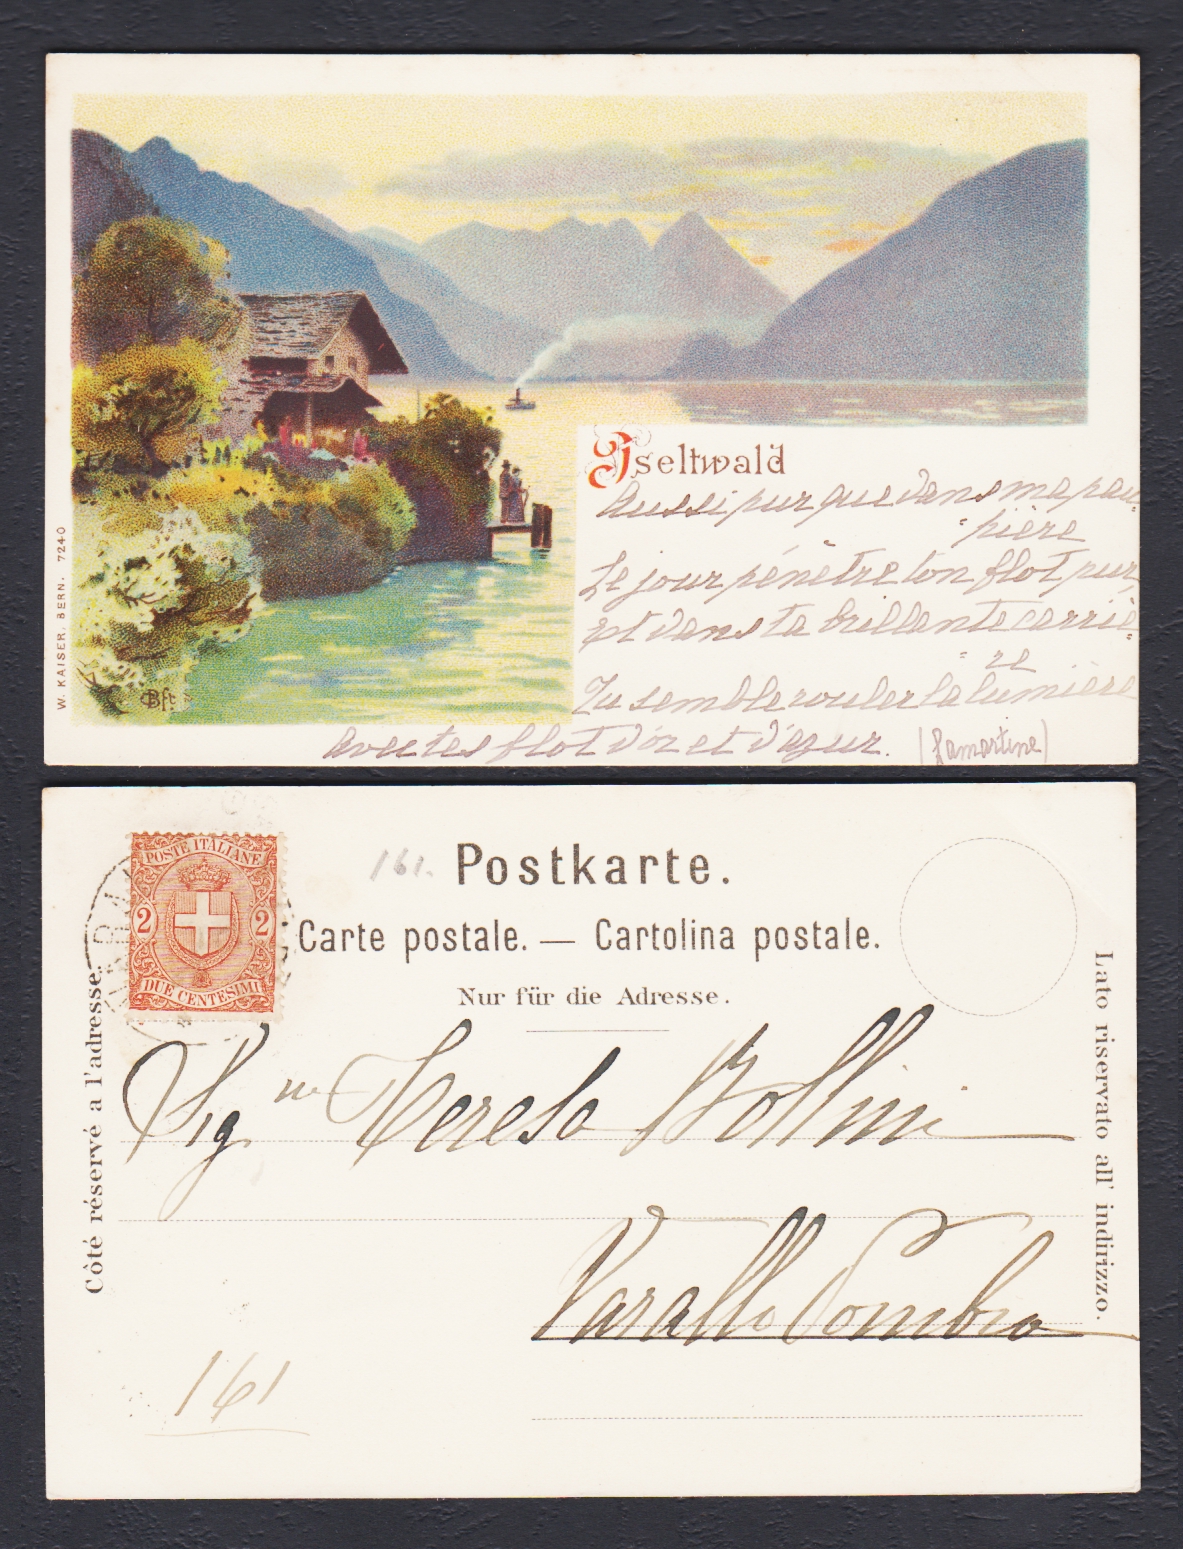 Iseltwald
Aussi pur que dans ma pau
- pière
Le jour pénètre ton flot pur
Et dans ta brillante carriè
- re
Tu semble rouler la lumière
Avec tes flots d'or et d'azur. (Lamartine)
W. KAISER, BERN. 7240
CBft
POSTE ITALIANE
2 2
DUE CENTESIMI
161.
Postkarte.
Carte postale. — Cartolina postale.
Nur für die Adresse.
Côté réservé a l'adresse.
Lato riservato all' indirizzo.
Sig na Teresa Bollini
Varallo Pombia
161